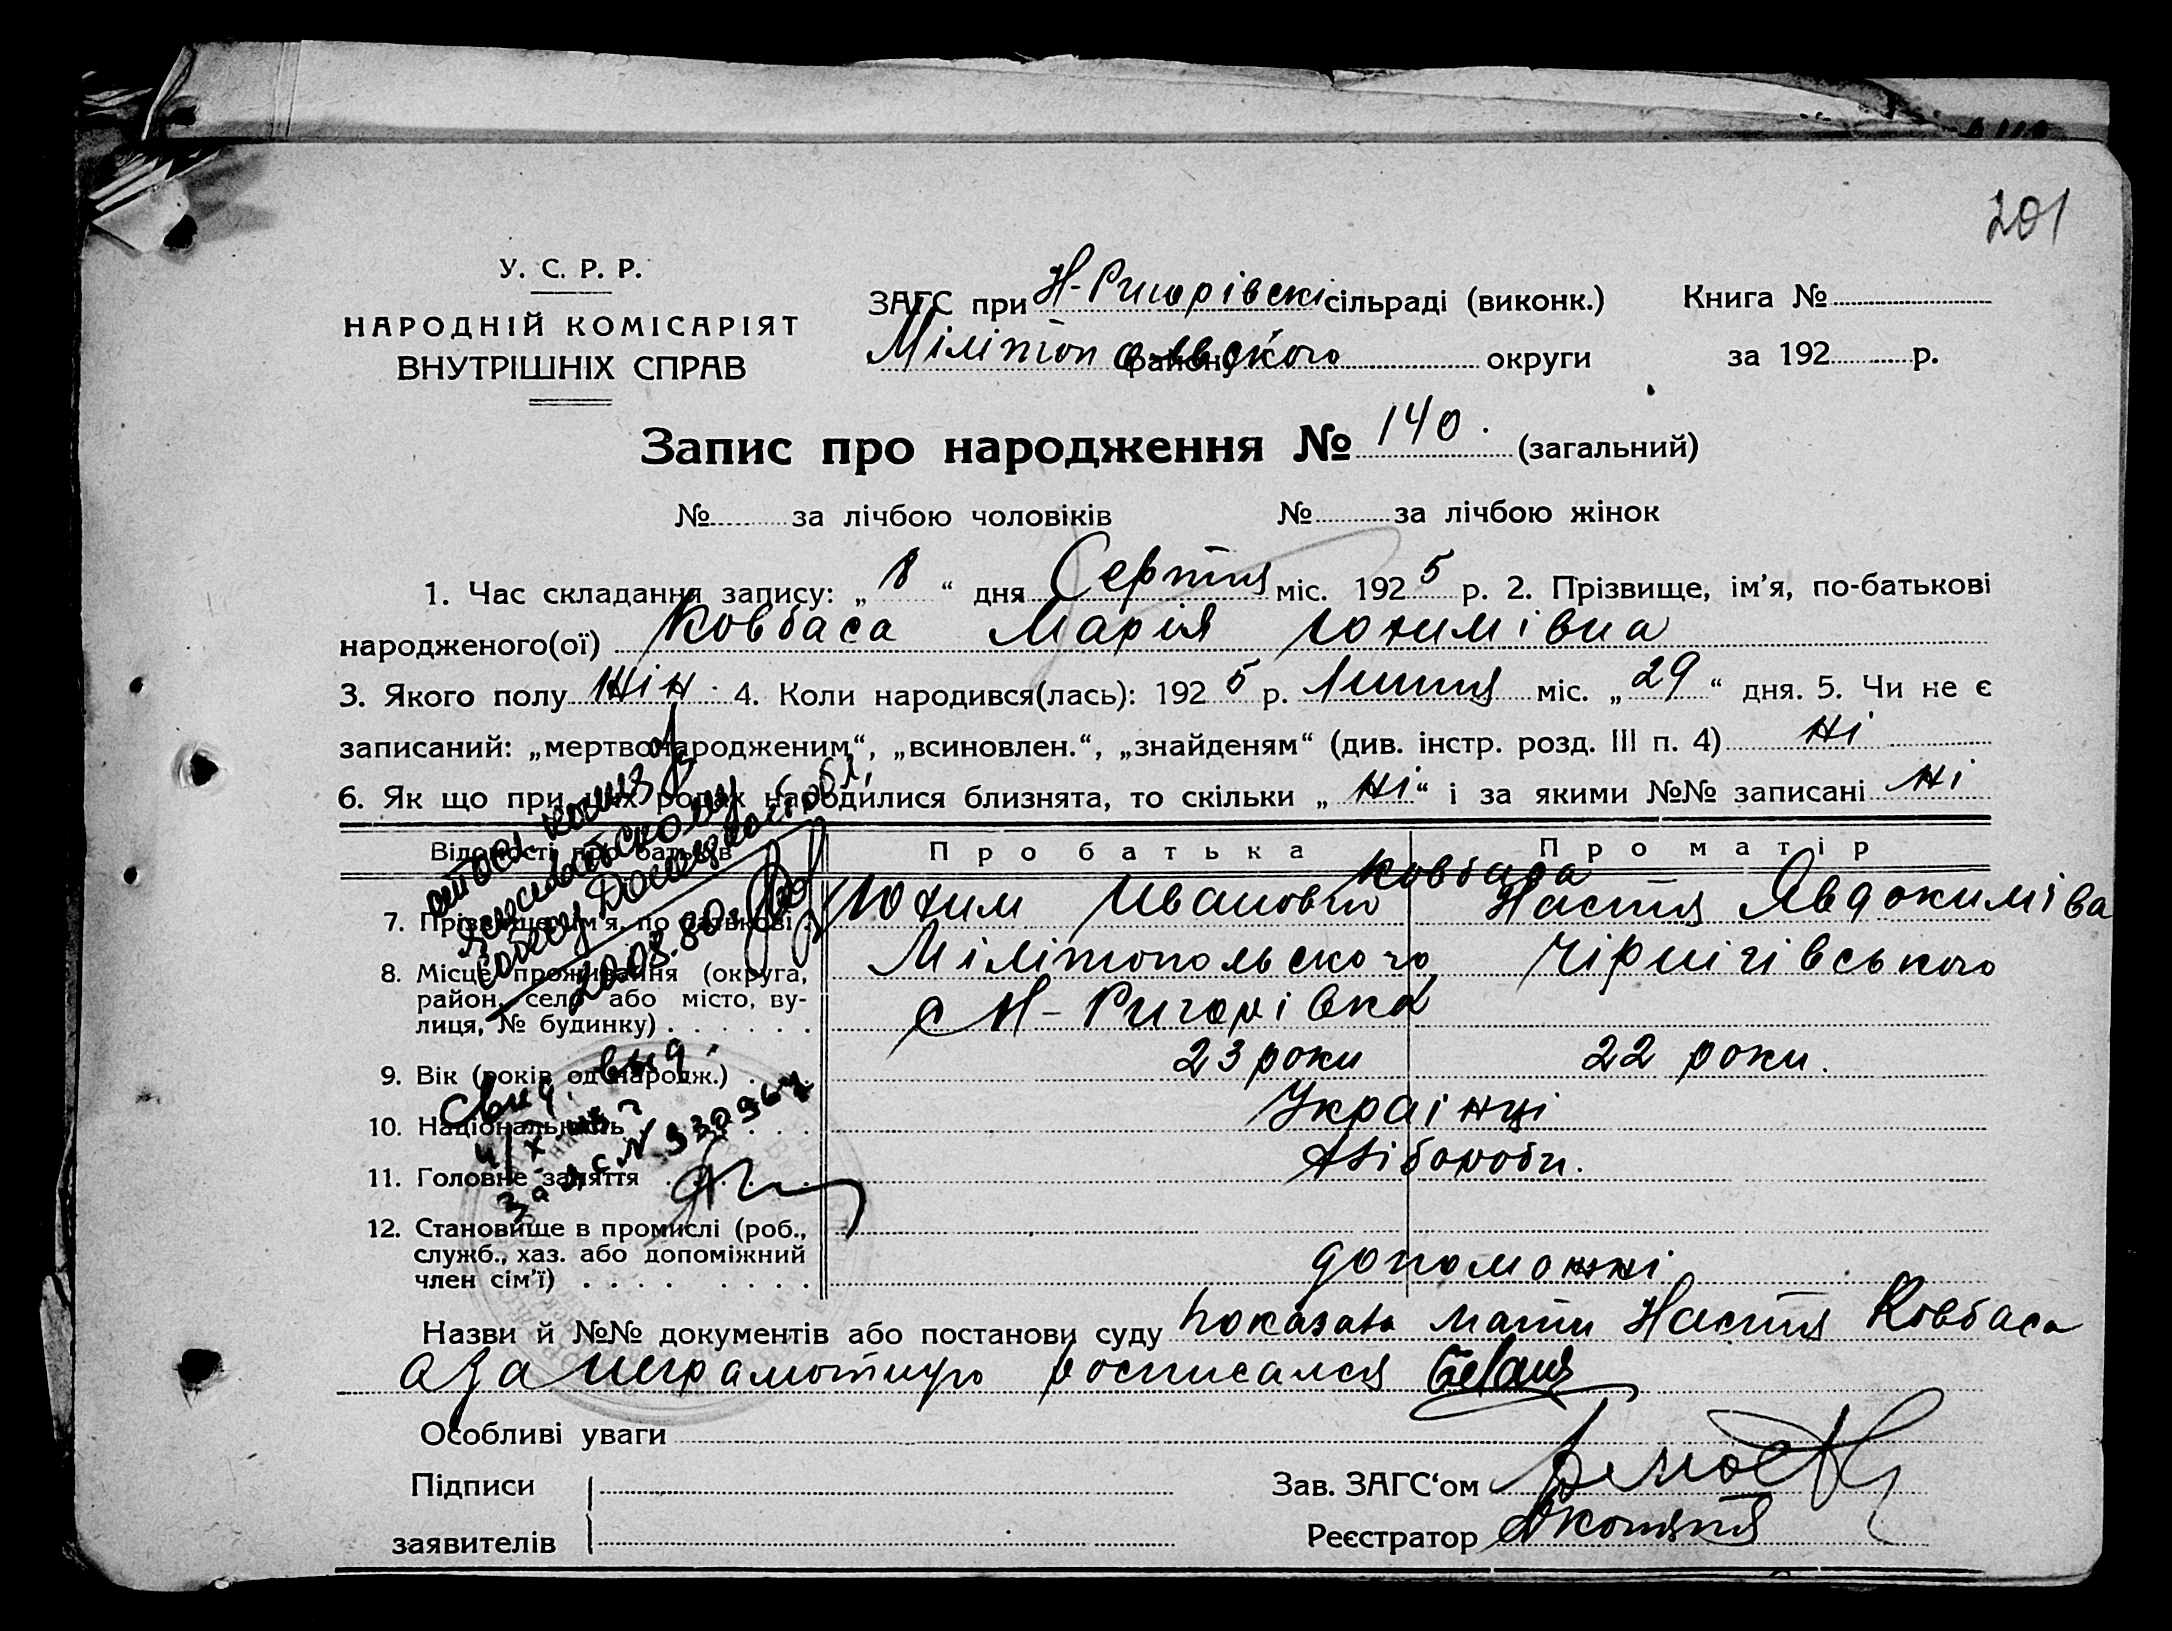 201
У. С. Р. Р.
НАРОДНІЙ КОМІСАРІЯТ
ВНУТРІШНІХ СПРАВ
ЗАГС при Н-Ригорівскі сільраді (виконк.) Книга №
Мілітопольського району округи за 192 р.
Запис про народження № 140. (загальний)
№ за лічбою чоловіків № за лічбою жінок
1. Час складання запису: „ 8 “ дня Серпня міс. 1925 р. 2. Прізвище, ім’я, по-батькові
народженого(ої) Ковбаса Марія Юхимівна
3. Якого полу жін. 4. Коли народився(лась): 1925 р. Липня міс. „ 29 “ дня. 5. Чи не є
записаний: „мертвонародженим“, „всиновлен.“, „знайденям“ (див. інстр. розд. III п. 4) ні
6. Як що при цих родах народилися близнята, то скільки „ ні “ і за якими №№ записані ні
Відомості про батьків Про батька Про матір
Ковбаса
7. Прізвище, ім’я, по батькові Юхим Иванович Настя Явдокиміва
8. Місце проживання (округа, Мілітопольского Чірнігівського
район, село або місто, ву- с Н-Ригорівка
лиця, № будинку)
9. Вік (років од народж.) 23 роки 22 роки.
10. Національність Українці
11. Головне заняття Хлібороби.
12. Становище в промислі (роб.,
служб., хаз. або допоміжний
член сім’ї) допоможні
Назви й №№ документів або постанови суду показала мати Настя Ковбаса
а за неграмотную росписался
Особливі уваги
Підписи
заявителів
Зав. ЗАГС‘ом
Реєстратор
20.08.80.